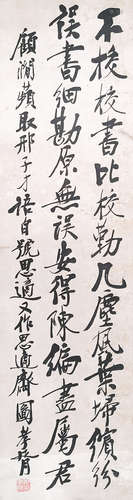 不校校書比校勤几塵風葉掃繽紛
誤書細勘原無誤安得陳編盡屬君
顧澗蘋取邢子才語自號思適又作思適齋圖 孝胥